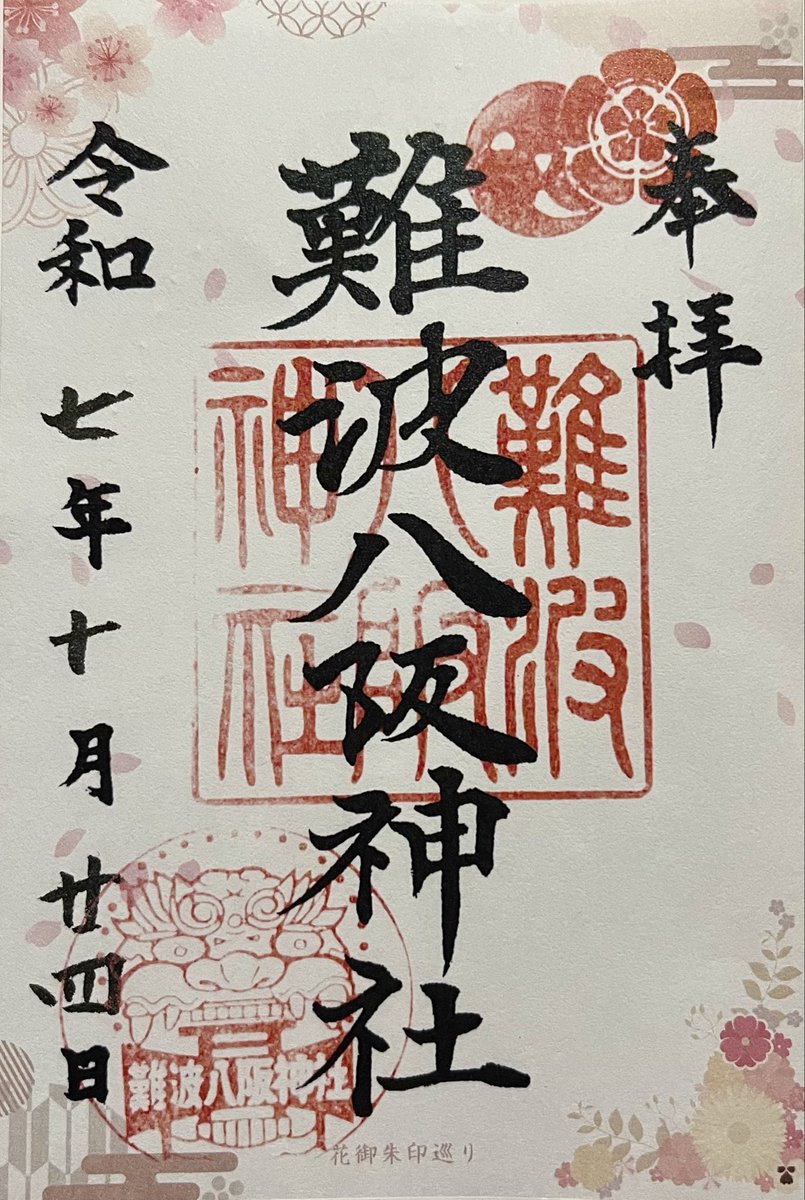 奉拝
難波八阪神社
難波八阪神社
令和七年十月廿四日
難波八阪神社
花御朱印巡り